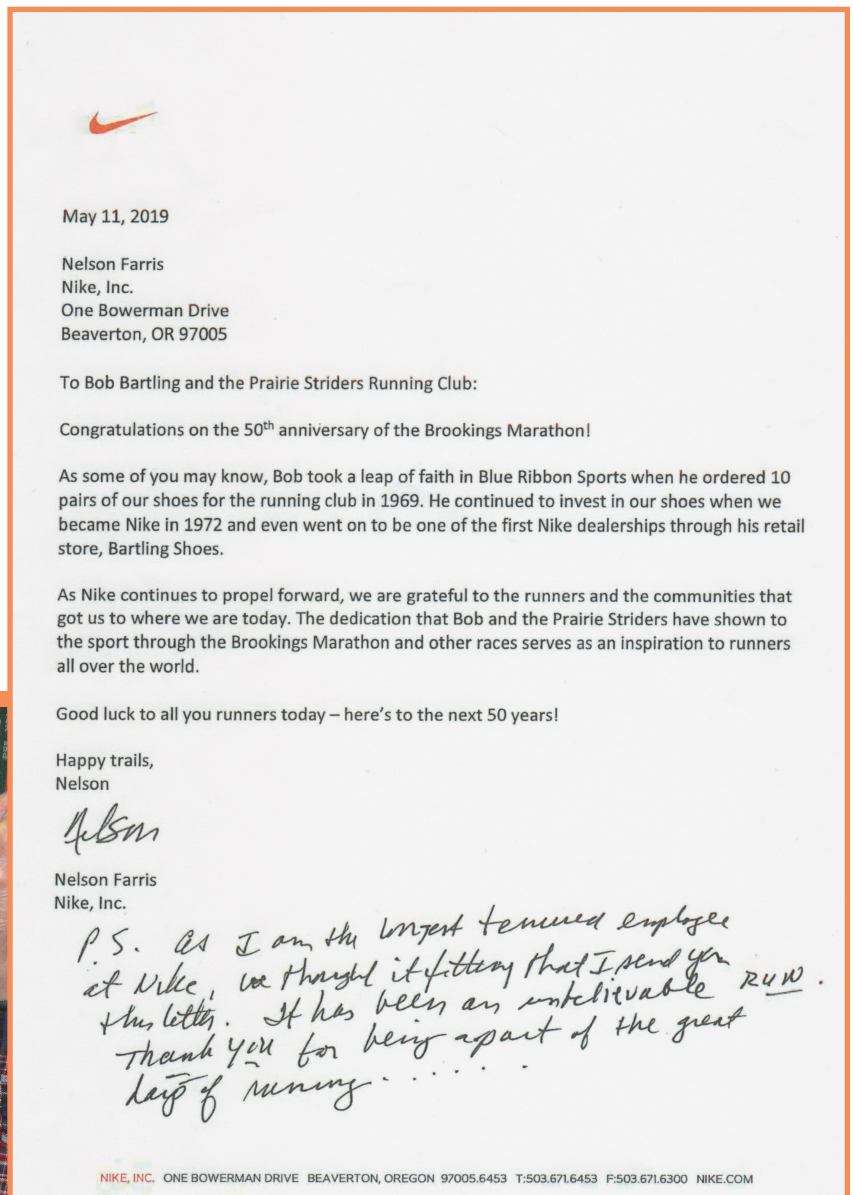 May 11, 2019
Nelson Farris
Nike, Inc.
One Bowerman Drive
Beaverton, OR 97005
To Bob Bartling and the Prairie Striders Running Club:
Congratulations on the 50th anniversary of the Brookings Marathon!
As some of you may know, Bob took a leap of faith in Blue Ribbon Sports when he ordered 10
pairs of our shoes for the running club in 1969. He continued to invest in our shoes when we
became Nike in 1972 and even went on to be one of the first Nike dealerships through his retail
store, Bartling Shoes.
As Nike continues to propel forward, we are grateful to the runners and the communities that
got us to where we are today. The dedication that Bob and the Prairie Striders have shown to
the sport through the Brookings Marathon and other races serves as an inspiration to runners
all over the world.
Good luck to all you runners today – here's to the next 50 years!
Happy trails,
Nelson
Nelson
Nelson Farris
Nike, Inc.
P.S. As I am the longest tenured employee
at Nike, we thought it fitting that I send you
this letter. It has been an unbelievable RUN.
Thank you for being apart of the great
days of running......
NIKE, INC. ONE BOWERMAN DRIVE BEAVERTON, OREGON 97005.6453 T:503.671.6453 F:503.671.6300 NIKE.COM